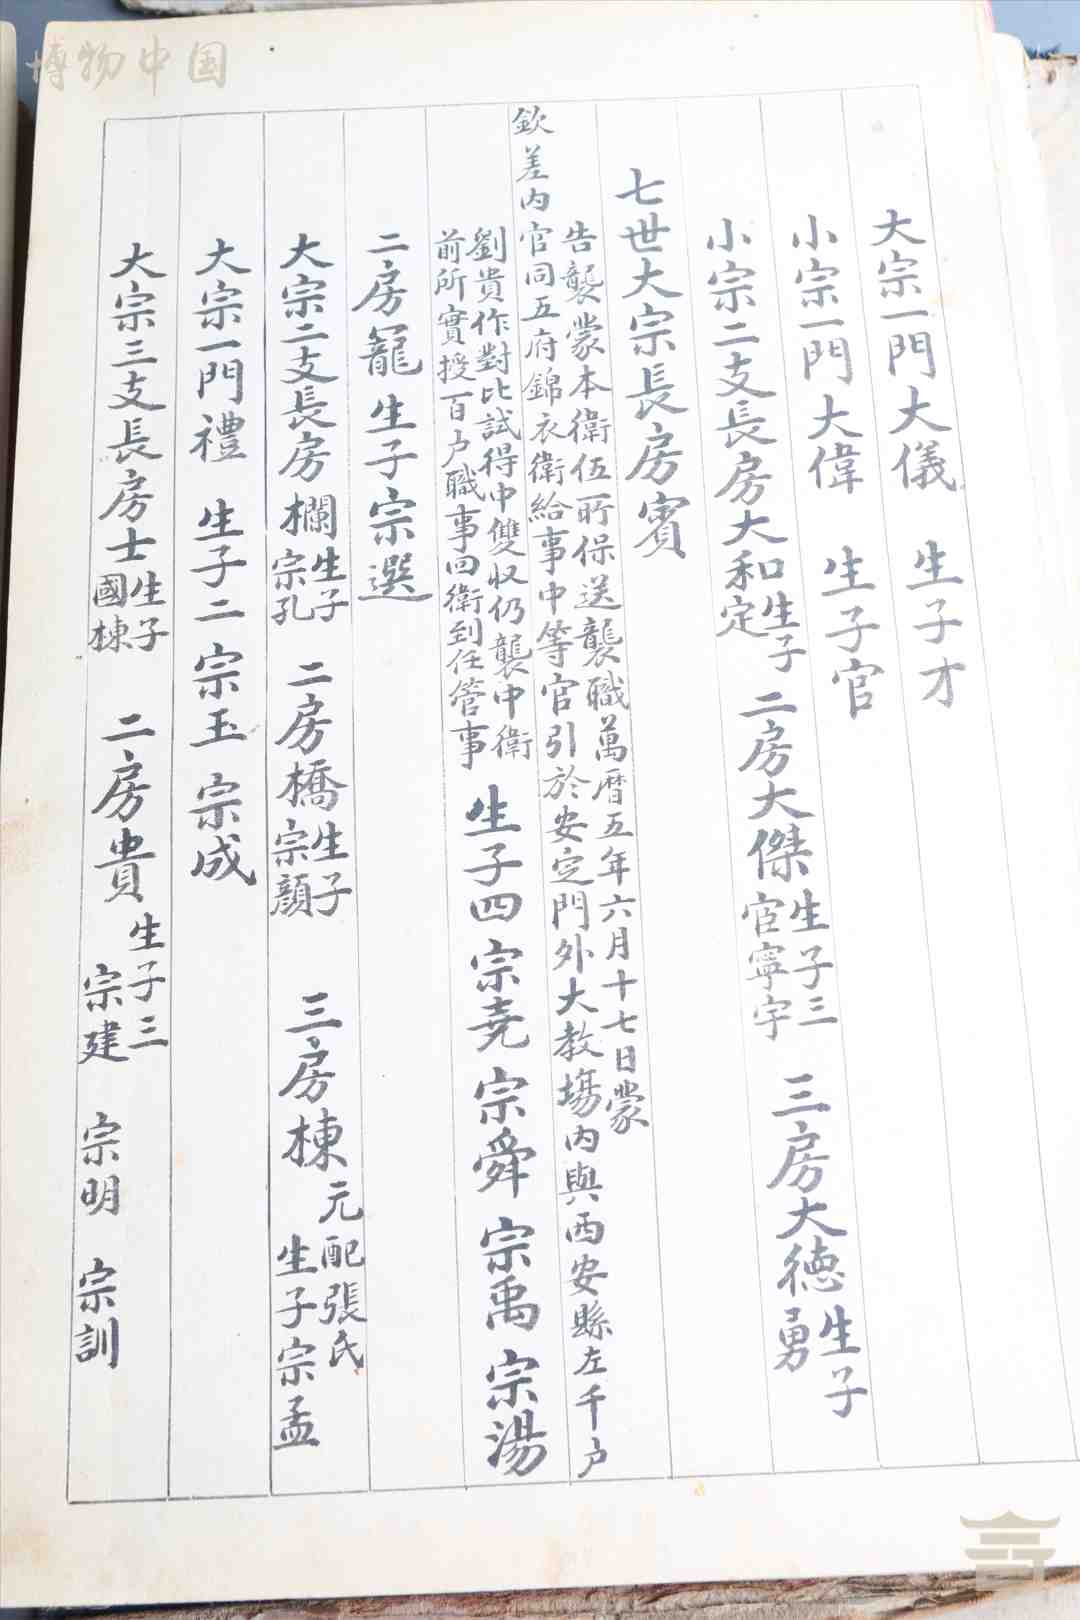 博物中国
大宗一門大儀 生子才
小宗一門大偉 生子官
小宗二支長房大和生子定 二房大傑生子三宦寧宇 三房大德生子勇
七世大宗長房賓
告襲蒙本衛伍所保送襲職萬曆五年六月十七日蒙
欽差內官同五府錦衣衛給事中等官引於安定門外大教場內與西安縣左千户
劉貴作對比試得中雙収仍襲中衛
前所實授百户職事回衛到任管事
生子四 宗堯 宗舜 宗禹 宗湯
二房寵 生子宗選
大宗二支長房欄生子宗孔 二房橋生子宗顏 三房棟元配張氏生子宗孟
大宗一門禮 生子二 宗玉 宗成
大宗三支長房士生子國棟 二房貴生子三 宗建 宗明 宗訓